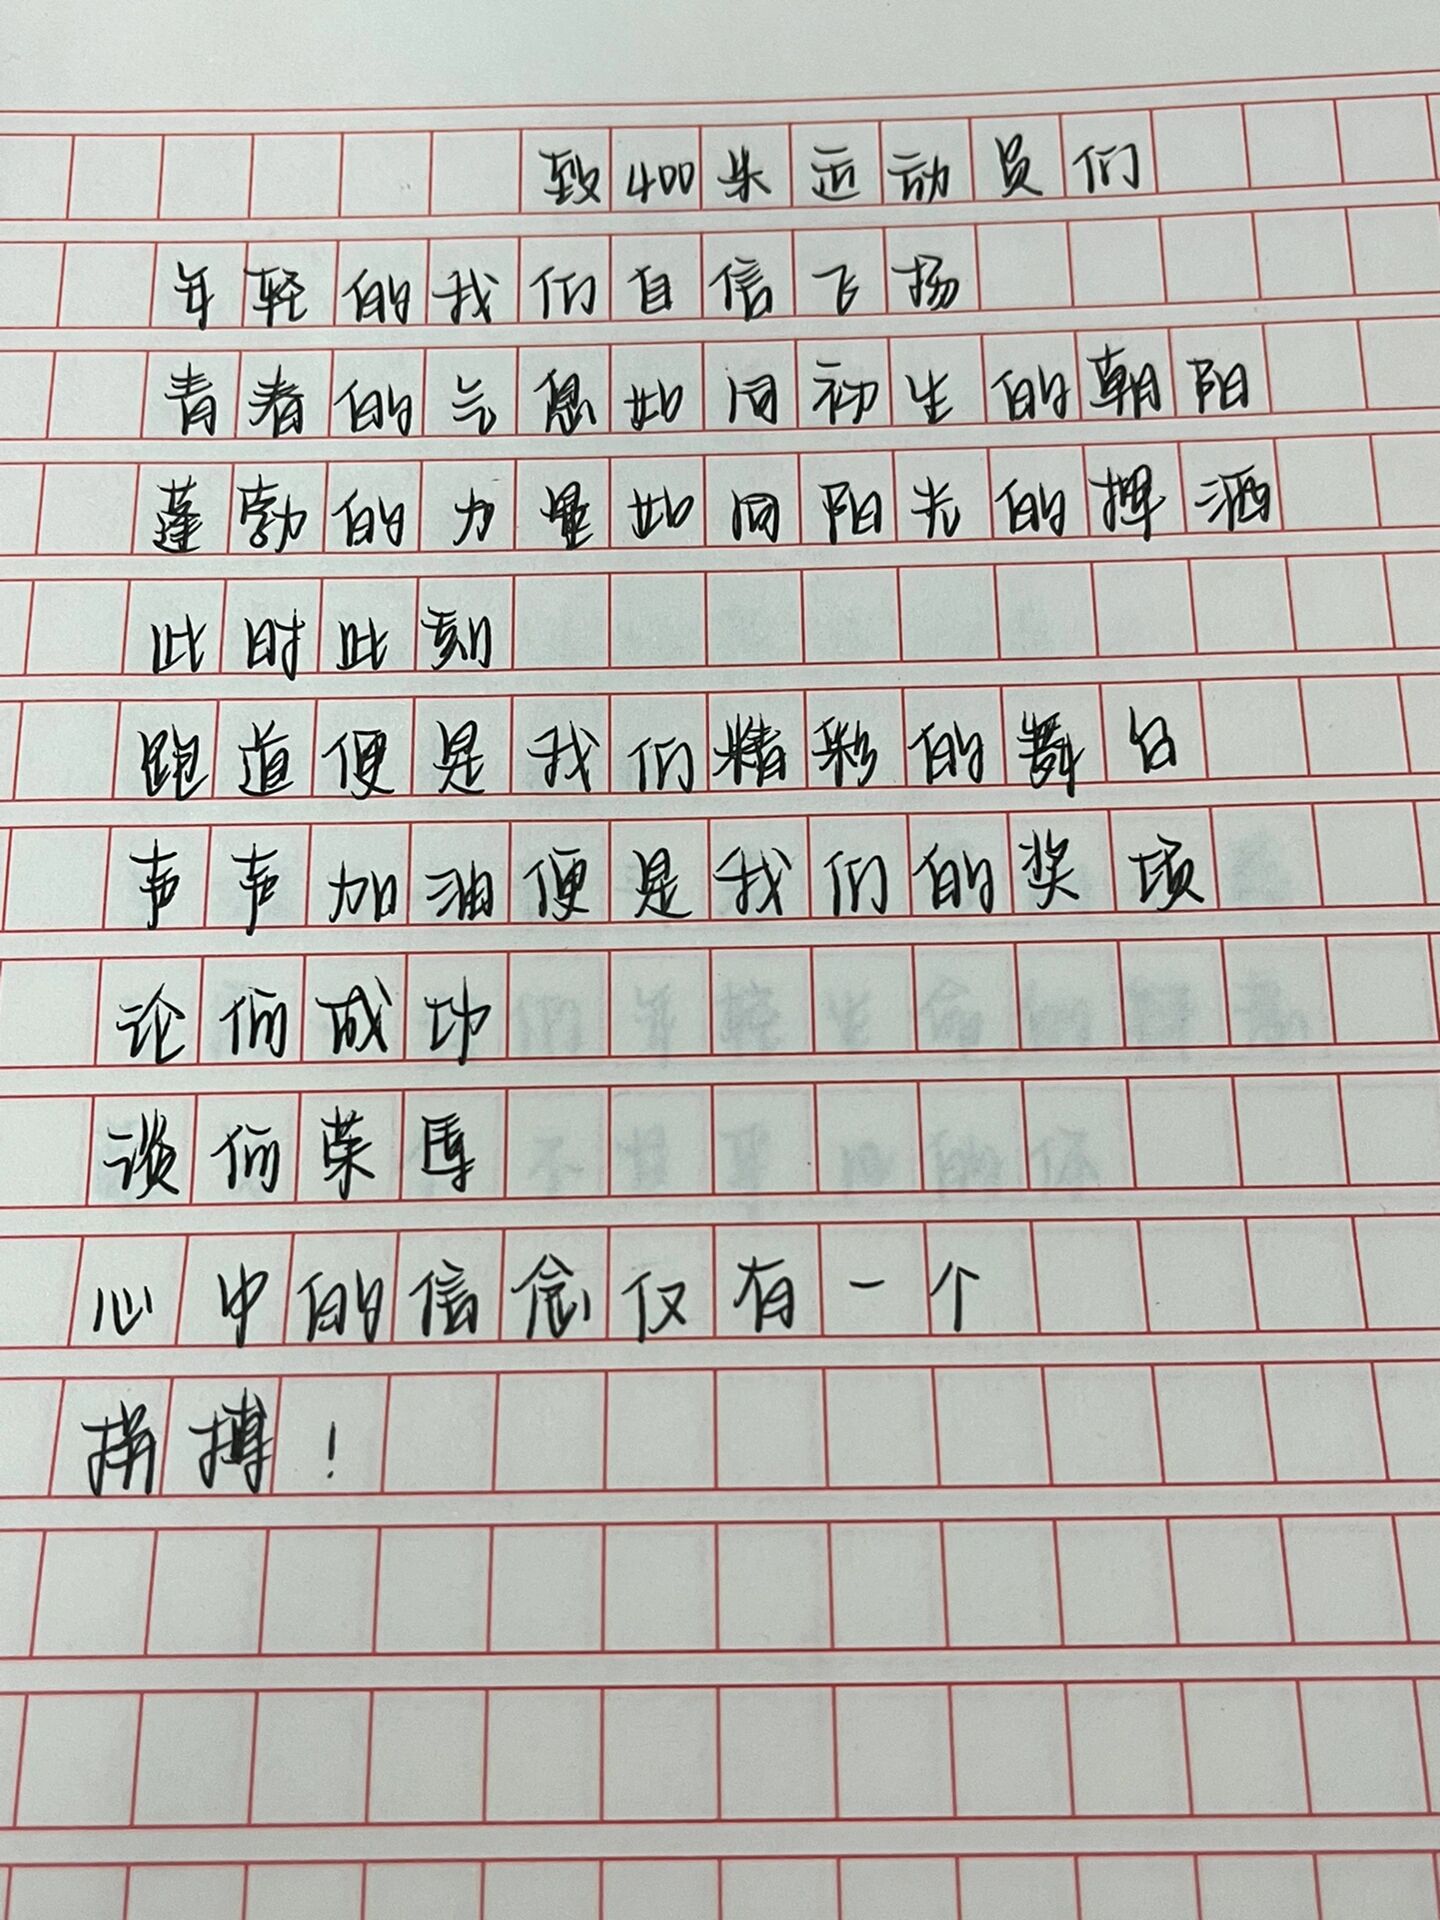 致400米运动员们
年轻的我们自信飞扬
青春的气息如同初生的朝阳
蓬勃的力量如同阳光的挥洒
此时此刻
跑道便是我们精彩的舞台
声声加油便是我们的奖项
论何成功
谈何荣辱
心中的信念仅有一个
拼搏！